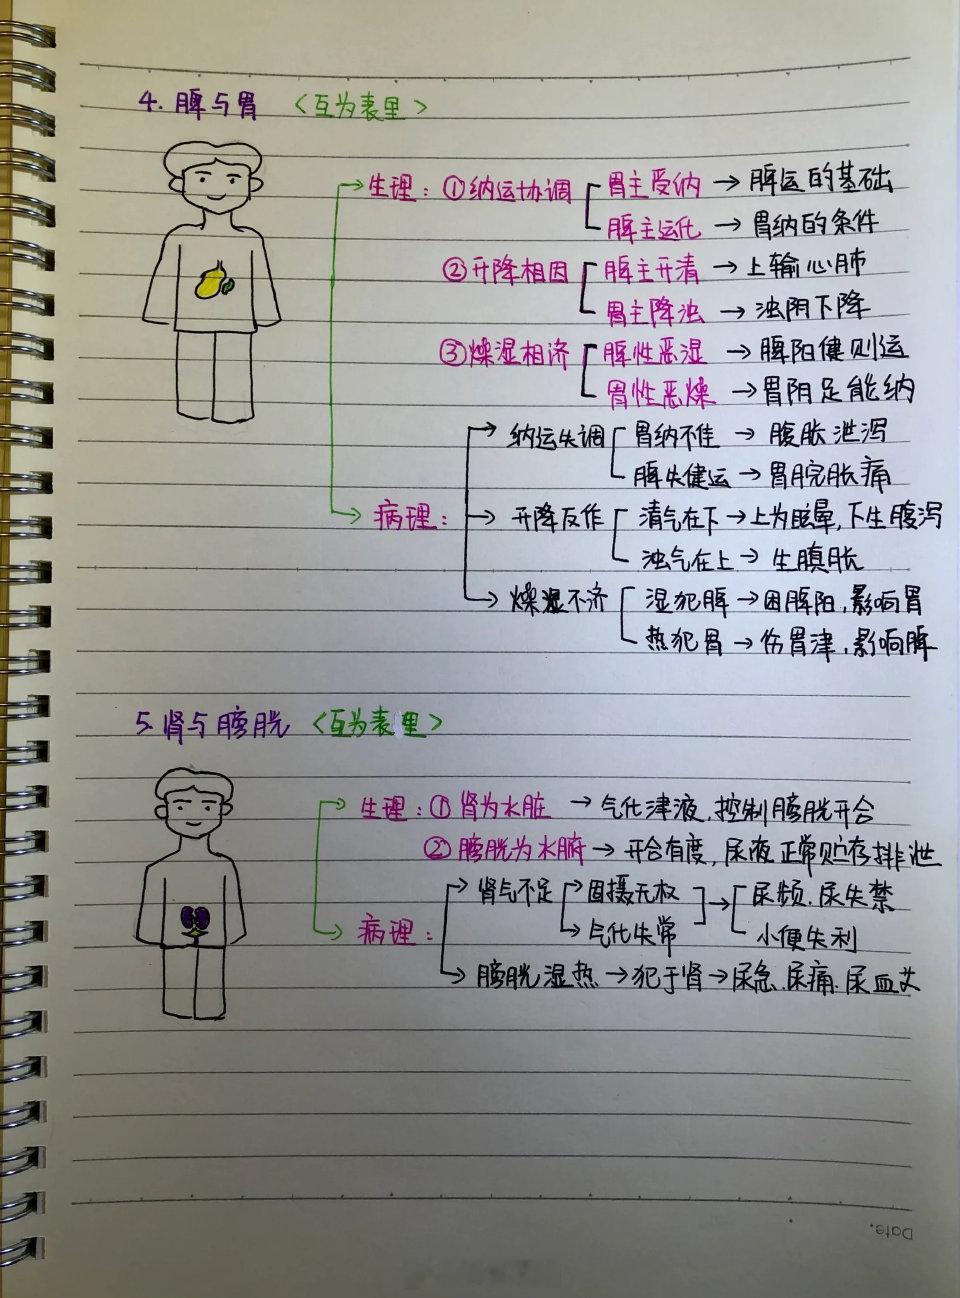 4. 脾与胃 <互为表里>
生理: ①纳运协调 胃主受纳 → 脾运的基础
脾主运化 → 胃纳的条件
②升降相因 脾主升清 → 上输心肺
胃主降浊 → 浊阴下降
③燥湿相济 脾性恶湿 → 脾阳健则运
胃性恶燥 → 胃阴足能纳
→ 纳运失调 胃纳不佳 → 腹胀泄泻
脾失健运 → 胃脘胀痛
病理: → 升降反作 清气在下 → 上为眩晕,下生腹泻
浊气在上 → 生䐜胀
→ 燥湿不济 湿犯脾 → 困脾阳,影响胃
热犯胃 → 伤胃津,影响脾
5. 肾与膀胱 <互为表里>
生理: ①肾为水脏 → 气化津液,控制膀胱开合
②膀胱为水腑 → 开合有度,尿液正常贮存排泄
→ 肾气不足 → 固摄无权 → 尿频.尿失禁
病理: → 气化失常 小便失利
→ 膀胱湿热 → 犯于肾 → 尿急.尿痛.尿血
Date.